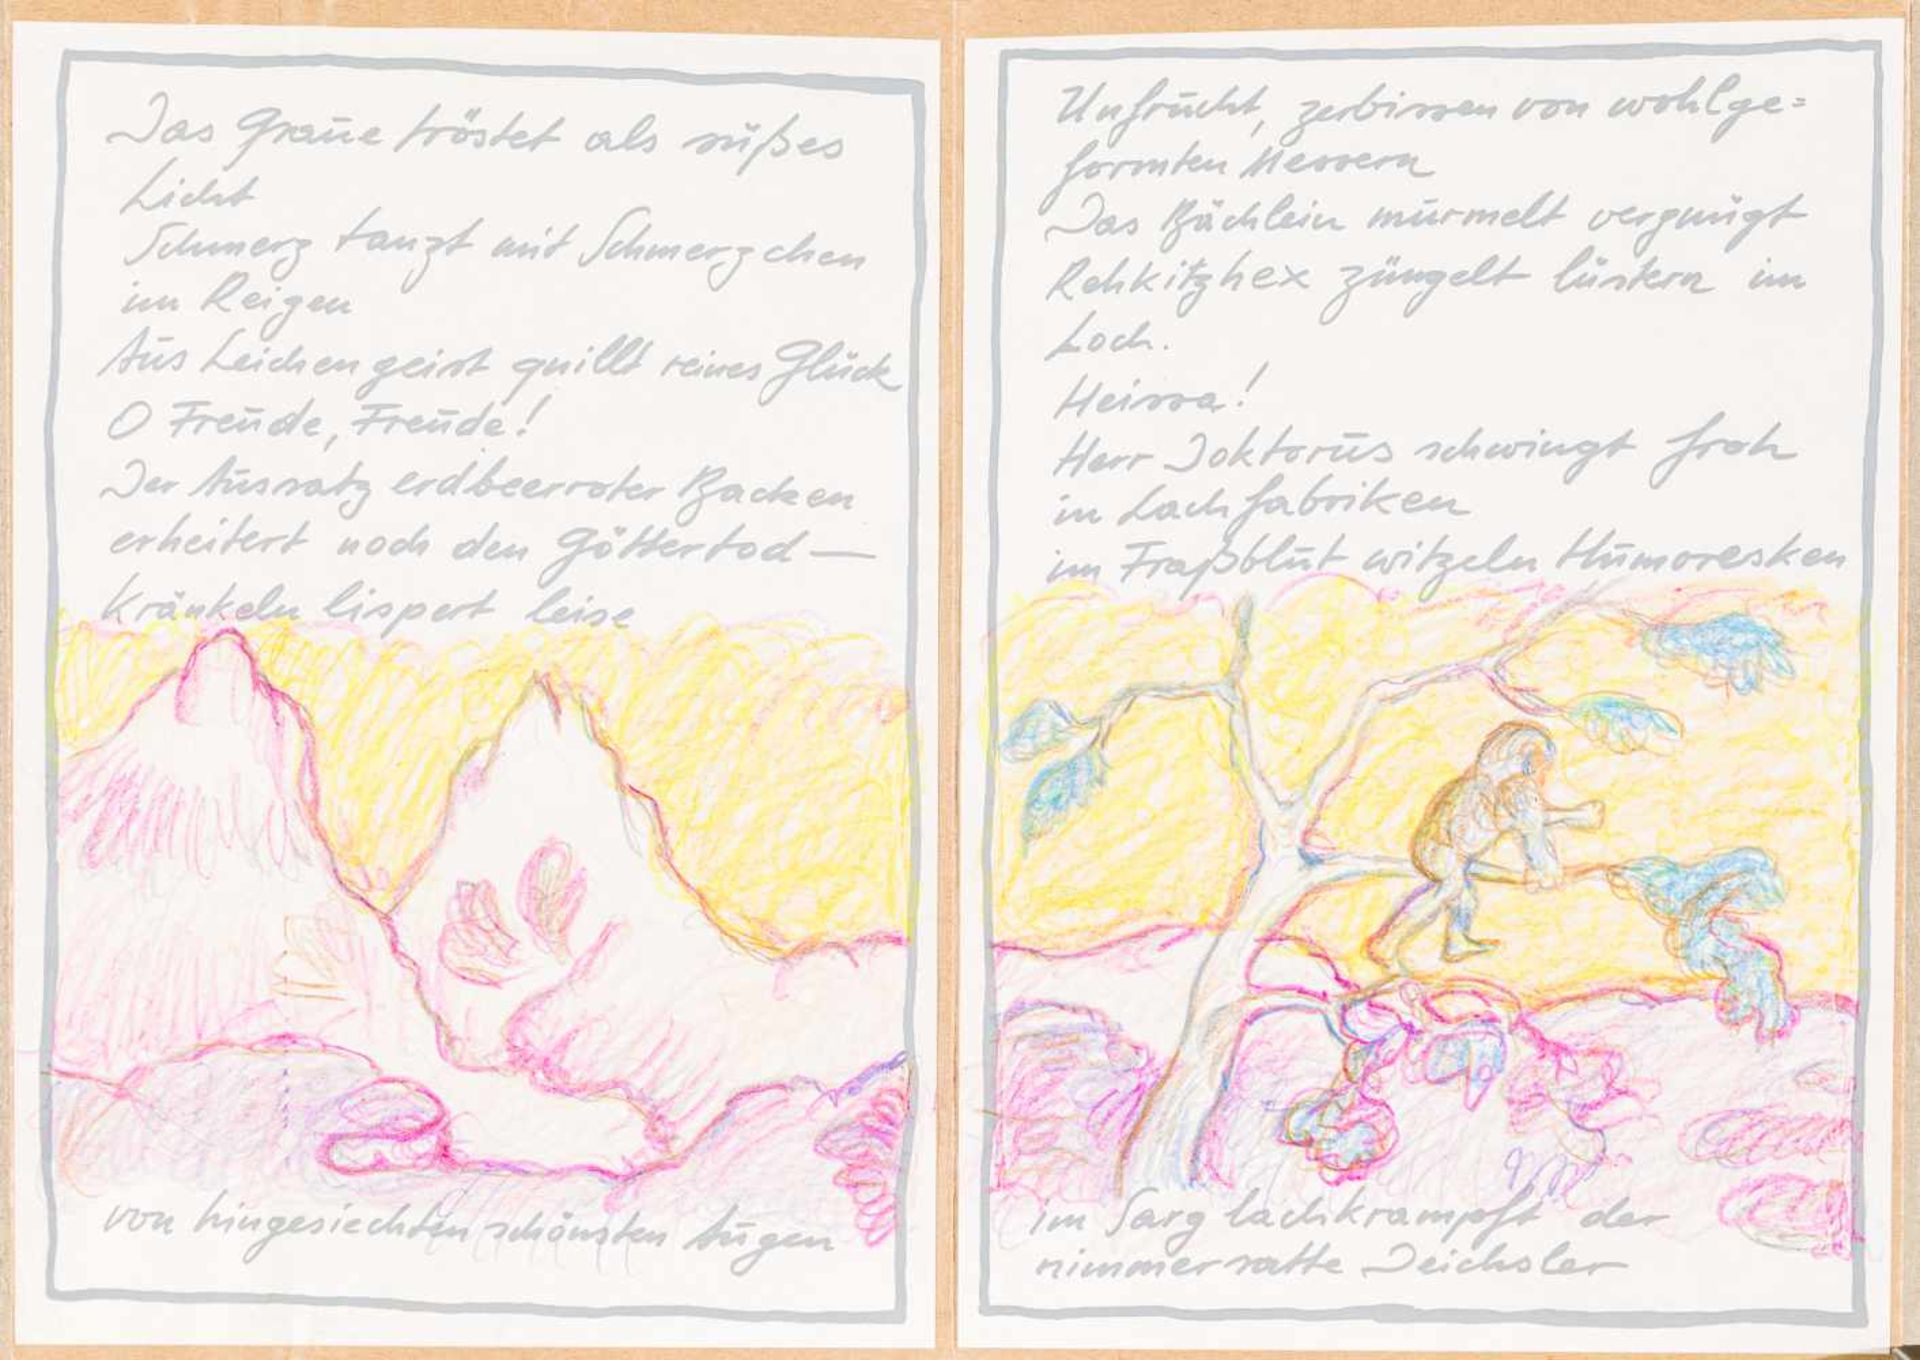 Das Graue tröstet als süßes
Licht
Schmerz tanzt mit Schmerzchen
im Reigen
Aus Leichengeist quillt reines Glück
O Freude, Freude!
Der Aussatz erdbeerroter Backen
erheitert noch den Göttertod—
Kränkeln lispert leise
von hingesiechten schönsten Augen
Unfrucht, zerbissen von wohlge=
formten Messern
Das Bächlein murmelt vergnügt
Rehkitzhex züngelt lüstern im
Loch.
Heissa!
Herr Doktorus schwingt froh
in Lachfabriken
im Fraßblut witzeln Humoresken
im Sarg lachkrampft der
nimmersatte Deichsler